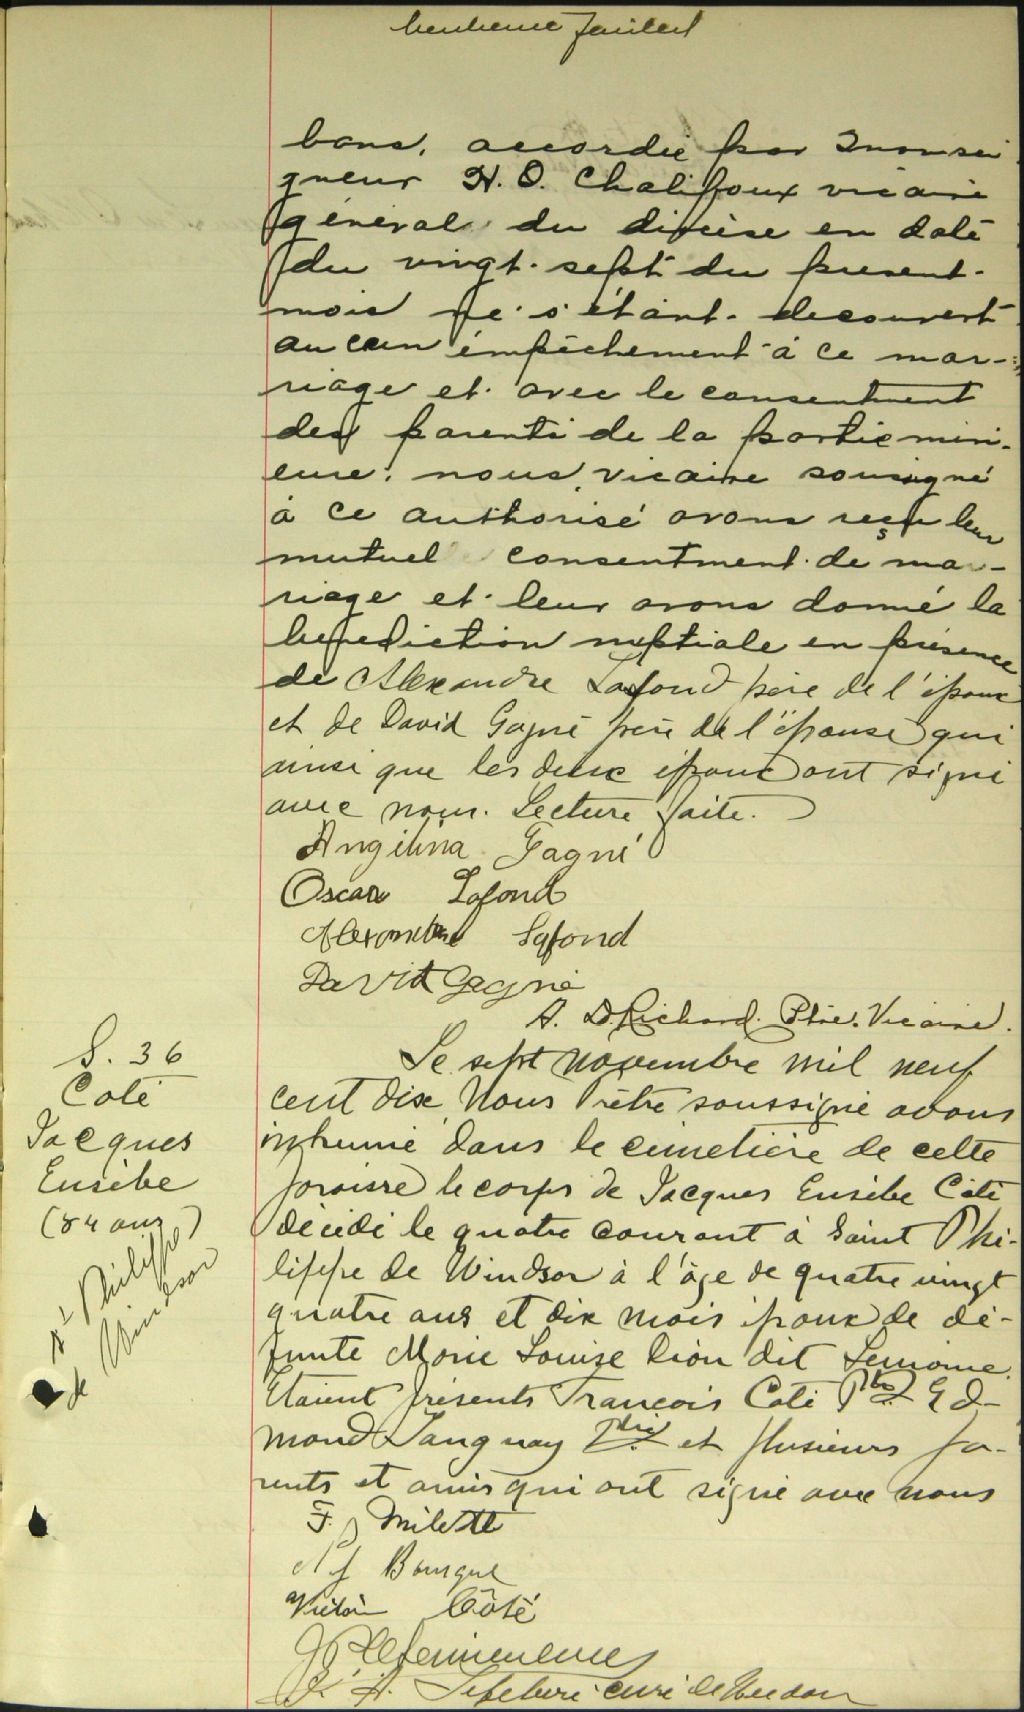 huitieme feuillet
bans, accordée par Monsei
gneur H. O. Chalifoux vicaire
général du diocèse en date
du vingt-sept du present
mois ne s'étant decouvert
aucun émpêchement à ce mar-
riage et avec le consentment
des parents de la partie min-
eure; nous, vicaire sousigné
à ce authorisé avons reçu leur
mutuel consentment de ma-
riage et leur avons donné la
bénédiction nuptiale en présence
de Alexandre Lafond père de l'époux
et de David Gagné père de l'épouse qui
ainsi que les deux époux ont signé
avec nous. Lecture faite.
Angelina Gagné
Oscar Lafond
Alexandre Lafond
David Gagné
A. D. Richard. Ptre. Vicaire.
S. 36
Coté
Jacques
Eusèbe
(84 ans)
St Philippe
de Windsor
Le sept novembre mil neuf
cent dix Nous Prêtre soussigné avons
inhumé dans le cimetière de cette
paroisse le corps de Jacques Eusèbe Côté
décédé le quatre courant à Saint Phi-
lippe de Windsor à l'âge de quatre vingt
quatre ans et dix mois époux de dé-
funte Marie Louise Lion dit Lemoine.
Etaient présents Francois Coté Ptre Ed-
mond Tanguay Ptre et plusieurs pa-
rents et amis qui ont signé avec nous
F. J. Milette
Bourque
Victor Côté
J. A. Lefebvre curé de Windsor